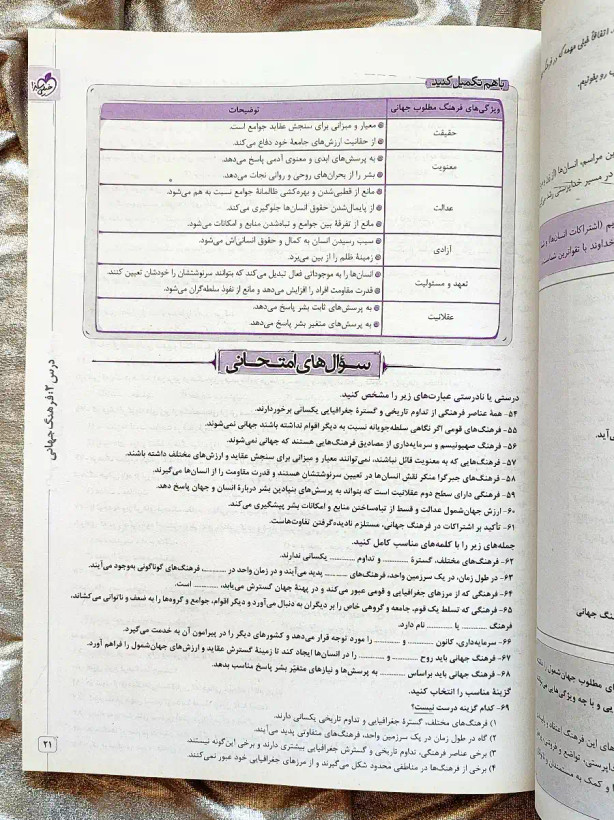 باهم تکمیل کنید
ویژگی‌های فرهنگ مطلوب جهانی
توضیحات
حقیقت
معیار و میزانی برای سنجش عقاید جوامع است.
از حقانیت ارزش‌های جامعهٔ خود دفاع می‌کند.
معنویت
به پرسش‌های ابدی و معنوی آدمی پاسخ می‌دهد.
بشر را از بحران‌های روحی و روانی نجات می‌دهد.
عدالت
مانع از قطبی‌شدن و بهره‌کشی ظالمانهٔ جوامع نسبت به هم می‌شود.
از پایمال‌شدن حقوق انسان‌ها جلوگیری می‌کند.
مانع از تفرقهٔ بین جوامع و تباه‌شدن منابع و امکانات می‌شود.
آزادی
سبب رسیدن انسان به کمال و حقوق انسانی‌اش می‌شود.
زمینهٔ ظلم را از بین می‌برد.
تعهد و مسئولیت
انسان‌ها را به موجوداتی فعال تبدیل می‌کند که بتوانند سرنوشتشان را خودشان تعیین کنند.
قدرت مقاومت افراد را افزایش می‌دهد و مانع از نفوذ سلطه‌گران می‌شود.
عقلانیت
به پرسش‌های ثابت بشر پاسخ می‌دهد.
به پرسش‌های متغیر بشر پاسخ می‌دهد.
سؤال‌های امتحانی
درستی یا نادرستی عبارت‌های زیر را مشخص کنید.
۵۴- همهٔ عناصر فرهنگی از تداوم تاریخی و گسترهٔ جغرافیایی یکسانی برخوردارند.
۵۵- فرهنگ‌های قومی اگر نگاهی سلطه‌جویانه نسبت به دیگر اقوام نداشته باشند جهانی نمی‌شوند.
۵۶- فرهنگ صهیونیسم و سرمایه‌داری از مصادیق فرهنگ‌هایی هستند که جهانی نمی‌شوند.
۵۷- فرهنگ‌هایی که به معنویت قائل نباشند، نمی‌توانند معیار و میزانی برای سنجش عقاید و ارزش‌های مختلف داشته باشند.
۵۸- فرهنگ‌های جبرگرا منکر نقش انسان‌ها در تعیین سرنوشتشان هستند و قدرت مقاومت را از انسان‌ها می‌گیرند.
۵۹- فرهنگی دارای سطح دوم عقلانیت است که بتواند به پرسش‌های بنیادین بشر دربارهٔ انسان و جهان پاسخ دهد.
۶۰- ارزش جهان‌شمول عدالت و قسط از تباه‌ساختن منابع و امکانات بشر پیشگیری می‌کند.
۶۱- تأکید بر اشتراکات در فرهنگ جهانی، مستلزم نادیده‌گرفتن تفاوت‌هاست.
جمله‌های زیر را با کلمه‌های مناسب کامل کنید.
۶۲- فرهنگ‌های مختلف، گسترهٔ ............ و تداوم ............ یکسانی ندارند.
۶۳- در طول زمان، در یک سرزمین واحد، فرهنگ‌های ............ پدید می‌آیند و در زمان واحد در ............، فرهنگ‌های گوناگونی به‌وجود می‌آیند.
۶۴- فرهنگی که از مرزهای جغرافیایی و قومی عبور می‌کند و در پهنهٔ جهان گسترش می‌یابد، ............ است.
۶۵- فرهنگی که تسلط یک قوم، جامعه و گروهی خاص را بر دیگران به دنبال می‌آورد و دیگر اقوام، جوامع و گروه‌ها را به ضعف و ناتوانی می‌کشاند،
فرهنگ ............ یا ............ نام دارد.
۶۶- سرمایه‌داری، کانون ............ و ............ را مورد توجه قرار می‌دهد و کشورهای دیگر را در پیرامون آن به خدمت می‌گیرد.
۶۷- فرهنگ جهانی باید روح ............ و ............ را در انسان‌ها ایجاد کند تا زمینهٔ گسترش عقاید و ارزش‌های جهان‌شمول را فراهم آورد.
۶۸- فرهنگ جهانی باید براساس ............ به پرسش‌ها و نیازهای متغیّر بشر پاسخ مناسب بدهد.
گزینهٔ مناسب را انتخاب کنید.
۶۹- کدام گزینه درست نیست؟
۱) فرهنگ‌های مختلف، گسترهٔ جغرافیایی و تداوم تاریخی یکسانی دارند.
۲) گاه در طول زمان در یک سرزمین واحد، فرهنگ‌های متفاوتی پدید می‌آیند.
۳) برخی عناصر فرهنگی، تداوم تاریخی و گسترش جغرافیایی بیشتری دارند و برخی این‌گونه نیستند.
۴) برخی از فرهنگ‌ها در مناطقی محدود شکل می‌گیرند و از مرزهای جغرافیایی خود عبور نمی‌کنند.
درس ۲: فرهنگ جهانی
۲۱